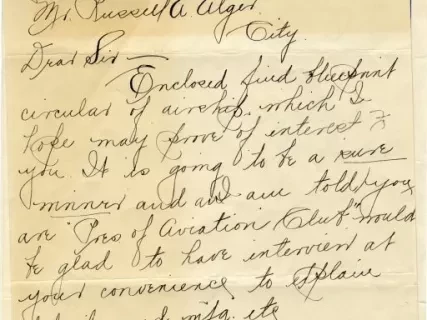 Mr. Russell A. Alger.
City.
Drar Sir —
Enclosed find blueprint
circular of airship, which I
hope may prove of interest to
you. It is going to be a sure
winner and and am told you
are "Pres of Aviation Club" would
be glad to have interview at
your convenience to explain
mfg. etc